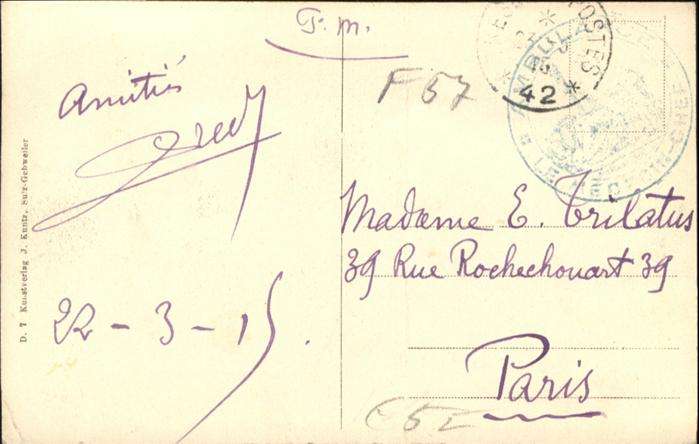 F. m.
Amitiés
Fred
22 - 3 - 15.
D. 7 Kunstverlag J. Kuntz, Sulz-Gebweiler
F 57
POSTES
* 42 *
AMBULA
Madame E. Trilatus
39 Rue Rochechouart 39
Paris